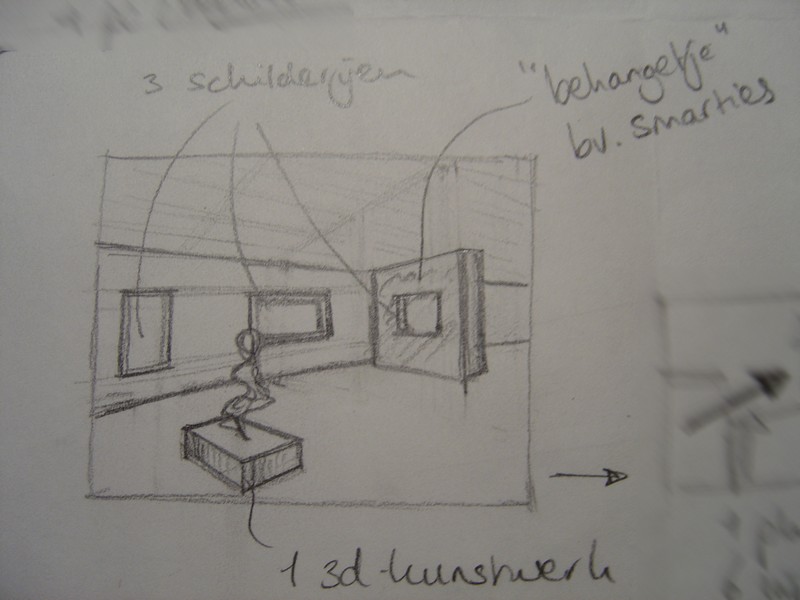 3 schilderijen
"behangetje"
bv. smarties
1 3d-kunstwerk